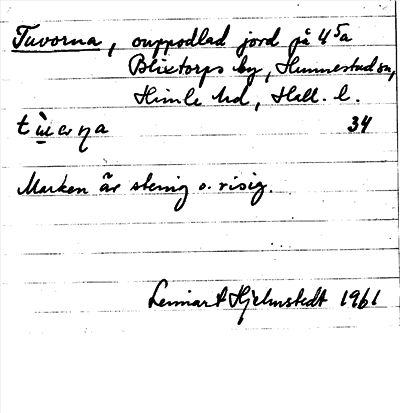 Tuvorna, ouppodlad jord på 4 5a
Blixtorps by, Hunnestad sn,
Himle hd, Hall. l.
34
Marken är stenig o. risig.
Lennart Hjelmstedt 1961